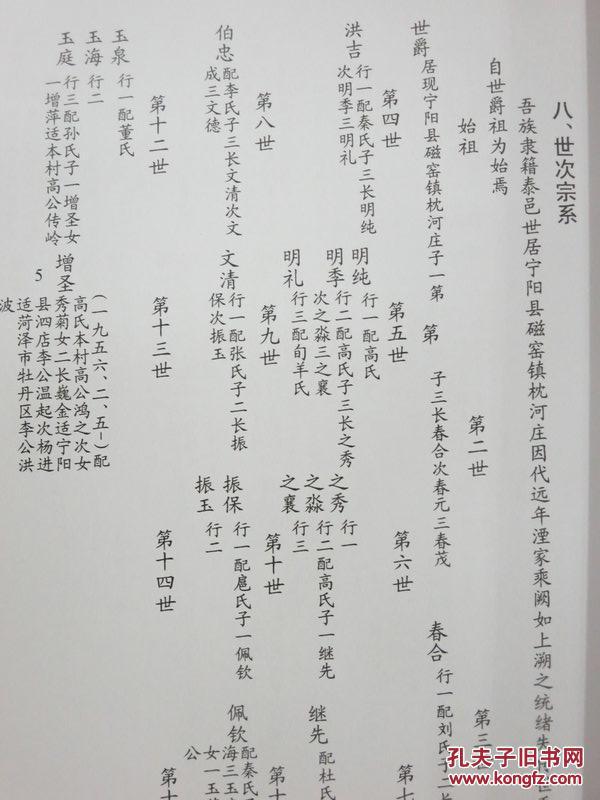 八、世次宗系
吾族隶籍泰邑世居宁阳县磁窑镇枕河庄因代远年湮家乘阙如上溯之统绪失
自世爵祖为始焉
始祖
第二世
第三
世爵
居现宁阳县磁窑镇枕河庄子一第
第
子三长春合次春元三春茂
春合
行一配刘氏子二长
第四世
第五世
第六世
第七
洪吉
行一配秦氏子三长明纯
次明季三明礼
明纯
行一配高氏
明季
行二配高氏子三长之秀
次之淼三之襄
明礼
行三配旬羊氏
之秀
行一
之淼
行二配高氏子一继先
之襄
行三
继先
配杜氏
第八世
第九世
第十世
第十
伯忠
配李氏子三长文清次文
成三文德
文清
行一配张氏子二长振
保次振玉
振保
行一配扈氏子一佩钦
振玉
行二
佩钦
配秦氏
海三玉
女一玉
公
第十二世
第十三世
第十四世
第十
玉泉
行一配董氏
玉海
行二
玉庭
行三配孙氏子一增圣女
一增萍适本村高公传岭
增圣
(一九五六、二、五-)配
高氏本村高公鸿之次女
秀菊女二长巍金适宁阳
县泗店李公温起次杨进
适菏泽市牡丹区李公洪
波
5
孔夫子旧书网
www.kongfz.com